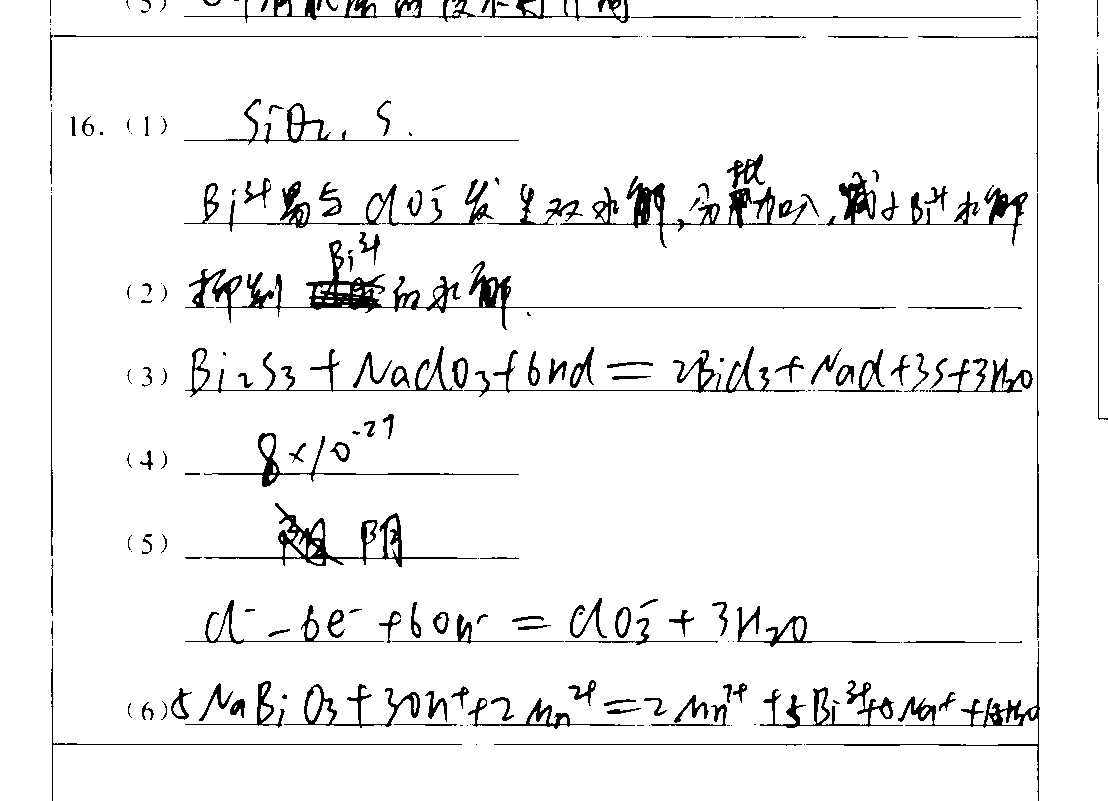 (5)
16. (1) SiO₂、S.
Bi³⁺易与ClO₃⁻发生双水解,分批加入,减少Bi³⁺水解
(2) 抑制 Bi³⁺ 的水解.
(3) Bi₂S₃+NaClO₃+6HCl=2BiCl₃+NaCl+3S+3H₂O
(4) 8×10⁻²⁷
(5) 阴
Cl⁻-6e⁻+6OH⁻=ClO₃⁻+3H₂O
(6) 5NaBiO₃+30H⁺+2Mn²⁺=2Mn⁷⁺+5Bi³⁺+5Na⁺+15H₂O